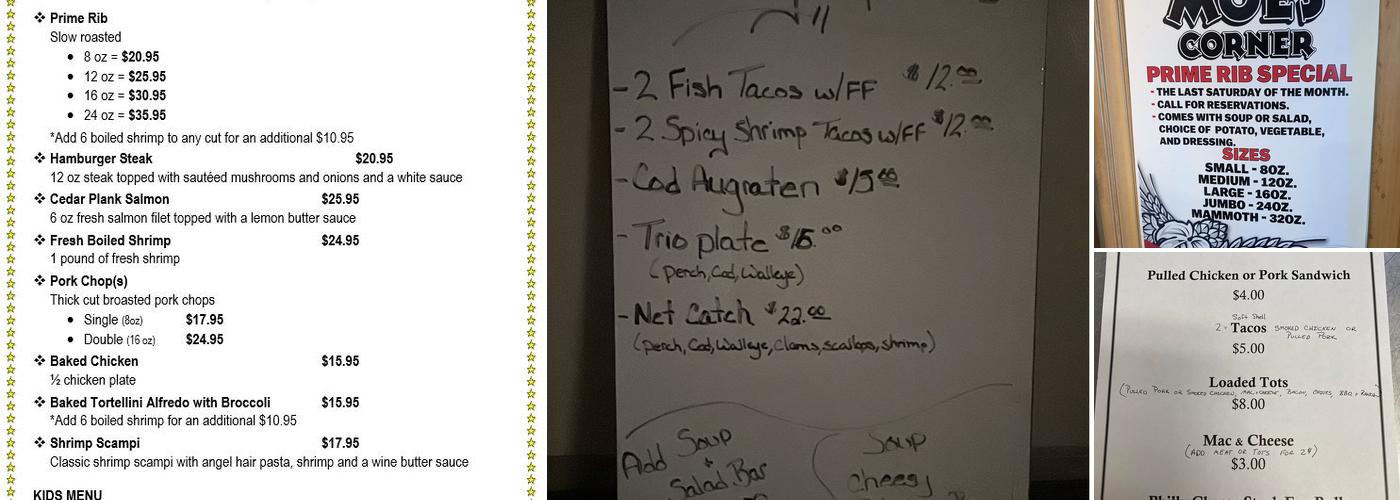 ❖ Prime Rib
Slow roasted
• 8 oz = $20.95
• 12 oz = $25.95
• 16 oz = $30.95
• 24 oz = $35.95
*Add 6 boiled shrimp to any cut for an additional $10.95
❖ Hamburger Steak $20.95
12 oz steak topped with sautéed mushrooms and onions and a white sauce
❖ Cedar Plank Salmon $25.95
6 oz fresh salmon filet topped with a lemon butter sauce
❖ Fresh Boiled Shrimp $24.95
1 pound of fresh shrimp
❖ Pork Chop(s)
Thick cut broasted pork chops
• Single (8oz) $17.95
• Double (16 oz) $24.95
❖ Baked Chicken $15.95
½ chicken plate
❖ Baked Tortellini Alfredo with Broccoli $15.95
*Add 6 boiled shrimp for an additional $10.95
❖ Shrimp Scampi $17.95
Classic shrimp scampi with angel hair pasta, shrimp and a wine butter sauce
KIDS MENU
- 2 Fish Tacos w/FF $12.00
- 2 Spicy Shrimp Tacos w/FF $12.00
- Cod Augraten $15.00
- Trio plate $15.00
(perch, Cod, Walleye)
- Net Catch $22.00
(perch, Cod, Walleye, Clams, scallops, shrimp)
Add Soup
+
Salad Bar
Soup
Cheesy
MOE'S
CORNER
PRIME RIB SPECIAL
- THE LAST SATURDAY OF THE MONTH.
- CALL FOR RESERVATIONS.
- COMES WITH SOUP OR SALAD,
CHOICE OF POTATO, VEGETABLE,
AND DRESSING.
SIZES
SMALL - 8OZ.
MEDIUM - 12OZ.
LARGE - 16OZ.
JUMBO - 24OZ.
MAMMOTH - 32OZ.
Pulled Chicken or Pork Sandwich
$4.00
Soft Shell
2 - Tacos SMOKED CHICKEN OR
PULLED PORK
$5.00
Loaded Tots
(PULLED PORK OR SMOKED CHICKEN, MAC + CHEESE, BACON, CHIVES, BBQ + RANCH)
$8.00
Mac & Cheese
(ADD MEAT OR TOTS FOR 2$)
$3.00